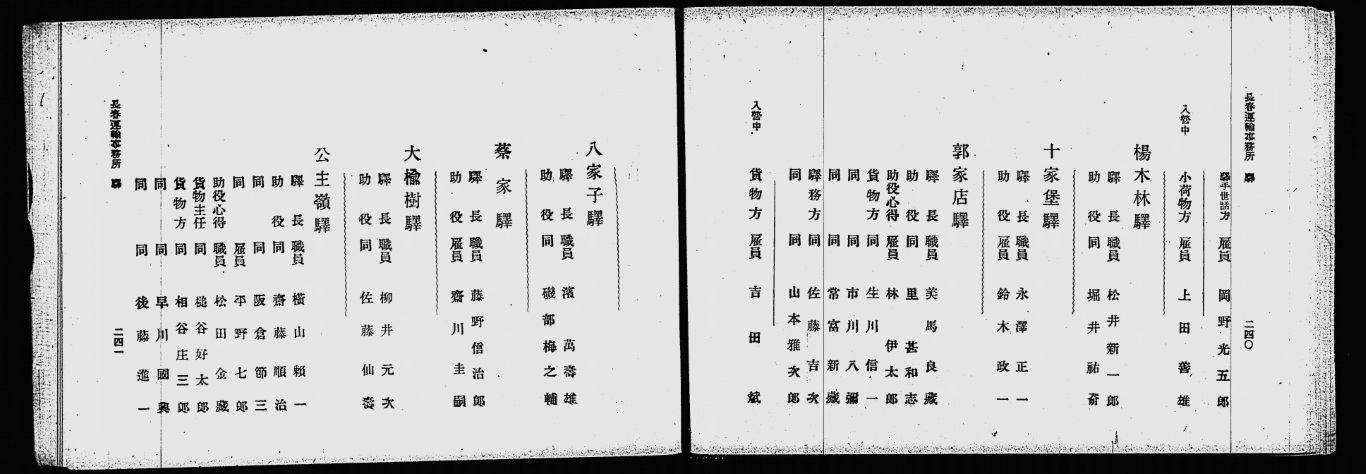 長春運輸事務所 驛 二四〇
驛手世話方 雇員 岡野光五郎
入營中 小荷物方 雇員 上田善雄
楊木林驛
驛長 職員 松井新一郎
助役 同 堀井祐斎
十家堡驛
驛長 職員 永澤正一
助役 雇員 鈴木政一
郭家店驛
驛長 職員 美馬良藏
助役 同 里甚和志
助役心得 雇員 林伊太郎
貨物方 同 生川信一
同 同 市川八彌
同 同 常富新藏
驛務方 同 佐藤吉次
同 同 山本雅次郎
入營中 貨物方 雇員 吉田斌
八家子驛
驛長 職員 濱萬壽雄
助役 同 磯部梅之輔
蔡家驛
驛長 職員 藤野信治郎
助役 雇員 齋川圭嗣
大楡樹驛
驛長 職員 柳井元次
助役 同 佐藤仙壽
公主嶺驛
驛長 職員 横山頼一
助役 同 齋藤順治
同 同 阪倉節三
同 雇員 平野七郎
助役心得 職員 松田金藏
貨物主任 同 槌谷好太郎
貨物方 同 相谷庄三郎
同 同 早川國興
同 同 後藤進一
長春運輸事務所 驛 二四一